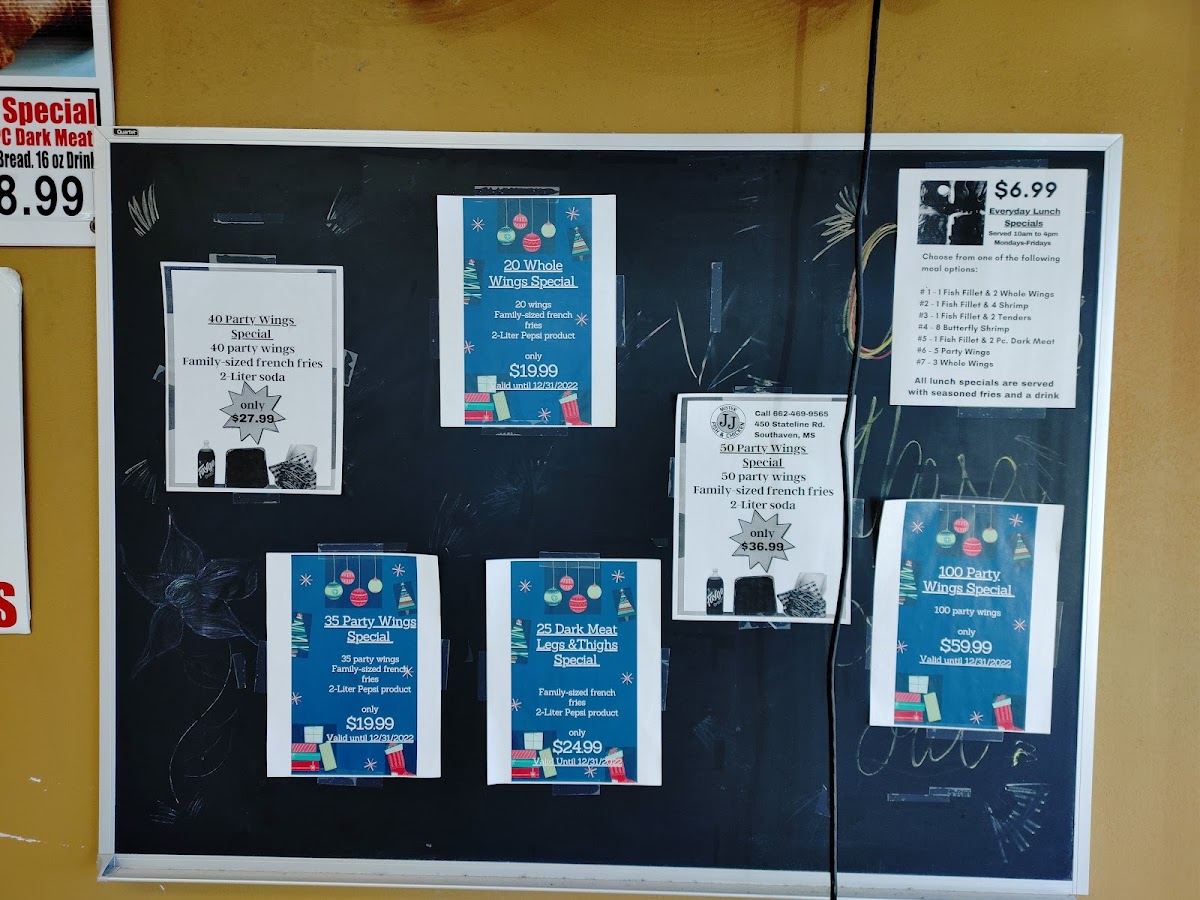 Special
PC Dark Meat
Bread, 16 oz Drink
8.99
S
Quartet
40 Party Wings
Special
40 party wings
Family-sized french fries
2-Liter soda
only
$27.99
Faygo
20 Whole
Wings Special
20 wings
Family-sized french
fries
2-Liter Pepsi product
only
$19.99
Valid until 12/31/2022
$6.99
Everyday Lunch
Specials
Served 10am to 4pm
Mondays-Fridays
Choose from one of the following
meal options:
#1 - 1 Fish Fillet & 2 Whole Wings
#2 - 1 Fish Fillet & 4 Shrimp
#3 - 1 Fish Fillet & 2 Tenders
#4 - 8 Butterfly Shrimp
#5 - 1 Fish Fillet & 2 Pc. Dark Meat
#6 - 5 Party Wings
#7 - 3 Whole Wings
All lunch specials are served
with seasoned fries and a drink
MISTER
JJ
FISH & CHICKEN
Call 662-469-9565
450 Stateline Rd.
Southaven, MS
50 Party Wings
Special
50 party wings
Family-sized french fries
2-Liter soda
only
$36.99
Faygo
35 Party Wings
Special
35 party wings
Family-sized french
fries
2-Liter Pepsi product
only
$19.99
Valid until 12/31/2022
25 Dark Meat
Legs &Thighs
Special
Family-sized french
fries
2-Liter Pepsi product
only
$24.99
Valid Until 12/31/2022
100 Party
Wings Special
100 party wings
only
$59.99
Valid until 12/31/2022
out